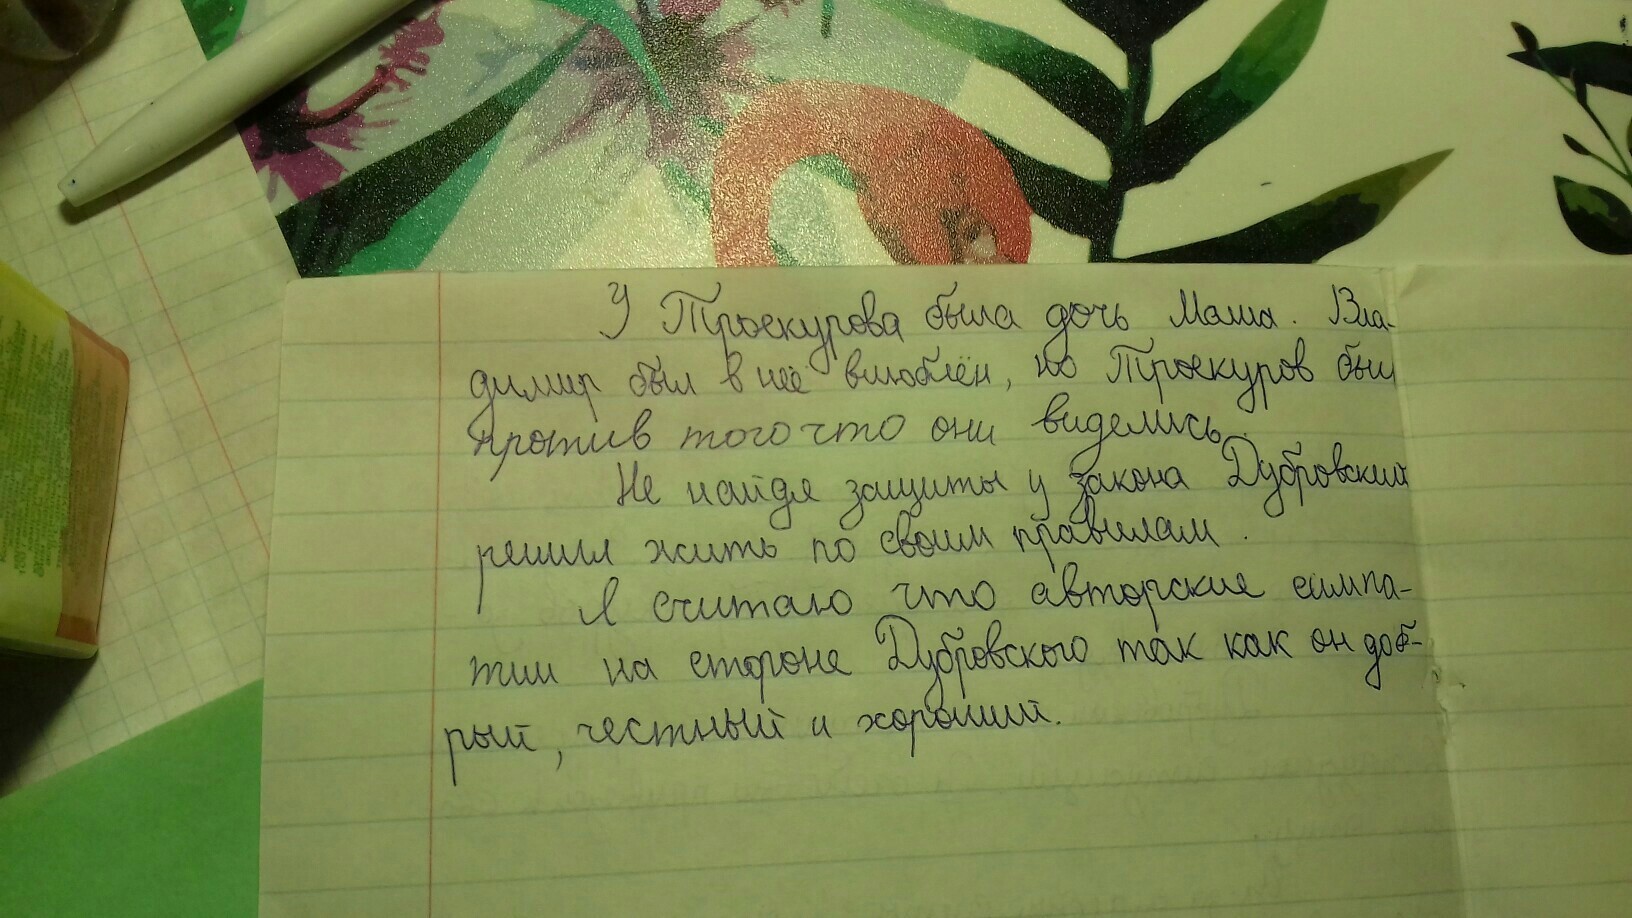 У Троекурова была дочь Маша. Вла-
димир был в неё влюблён, но Троекуров был
против того что они виделись.
Не найдя защиты у закона Дубровский
решил жить по своим правилам.
Я считаю что авторские симпа-
тии на стороне Дубровского так как он доб-
рый, честный и хороший.